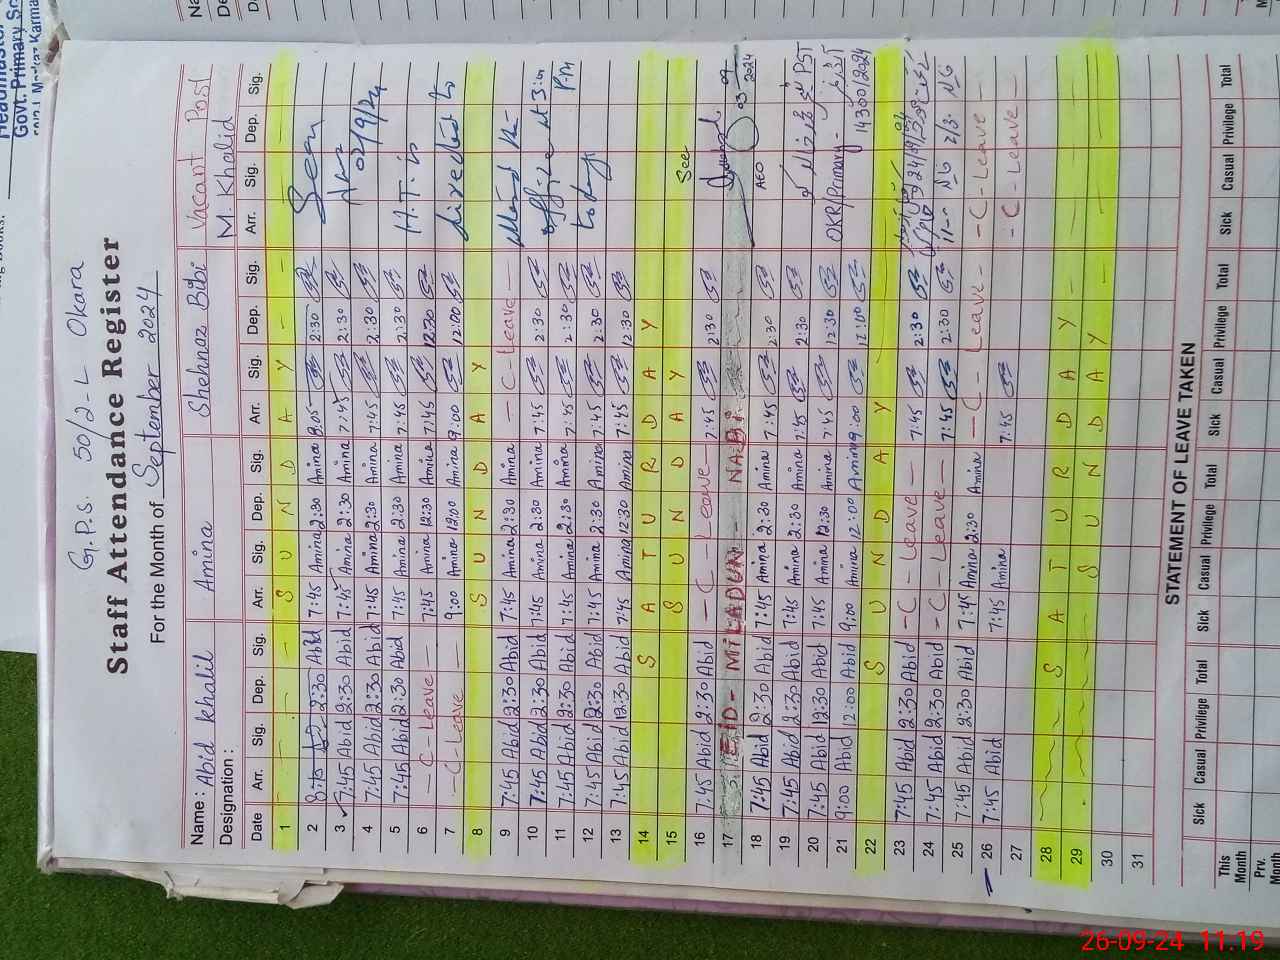 G.P.S. 50/2-L Okara
Staff Attendance Register
For the Month of September 2024
Name: Abid Khalil Amina Shehnaz Bibi Vacant Post
Designation: M. Khalid
Date Arr. Sig. Dep. Sig. Arr. Sig. Dep. Sig. Arr. Sig. Dep. Sig. Arr. Sig. Dep. Sig.
1 S U N D A Y
2 2:30 Abid 7:45 Amina 2:30 Amina 2:30 Seen
3 7:45 Abid 2:30 Abid 7:45 Amina 2:30 Amina 7:45 2:30
4 7:45 Abid 2:30 Abid 7:45 Amina 2:30 Amina 7:45 2:30 02/9/24
5 7:45 Abid 2:30 Abid 7:45 Amina 2:30 Amina 7:45 2:30 H.T. is
6 - C - Leave - 7:45 Amina 12:30 Amina 7:45 12:30
7 - C - Leave - 9:00 Amina 12:00 Amina 9:00 12:00 directed to
8 S U N D A Y
9 7:45 Abid 2:30 Abid 7:45 Amina 2:30 Amina - C - Leave - Attend the
10 7:45 Abid 2:30 Abid 7:45 Amina 2:30 Amina 7:45 2:30 office at 3:00
11 7:45 Abid 2:30 Abid 7:45 Amina 2:30 Amina 7:45 2:30 P.M
12 7:45 Abid 2:30 Abid 7:45 Amina 2:30 Amina 7:45 2:30 today
13 7:45 Abid 12:30 Abid 7:45 Amina 12:30 Amina 7:45 12:30
14 S A T U R D A Y
15 S U N D A Y See
16 7:45 Abid 2:30 Abid - C - Leave - 7:45 2:30
17 EID - MILADUN - NABI
18 7:45 Abid 2:30 Abid 7:45 Amina 2:30 Amina 7:45 2:30 AEO 03 09 2024
19 7:45 Abid 2:30 Abid 7:45 Amina 2:30 Amina 7:45 2:30
20 7:45 Abid 12:30 Abid 7:45 Amina 12:30 Amina 7:45 12:30 PST
21 9:00 Abid 12:00 Abid 9:00 Amina 12:00 Amina 9:00 12:00 OKR/Primary - 14300/2024
22 S U N D A Y
23 7:45 Abid 2:30 Abid - C - Leave -
24 7:45 Abid 2:30 Abid - C - Leave - 7:45 2:30
25 7:45 Abid 2:30 Abid 7:45 Amina 2:30 Amina 7:45 2:30
26 7:45 Abid 7:45 Amina - C - Leave - - C - Leave -
27 7:45 - C - Leave -
28 S A T U R D A Y
29 S U N D A Y
30
31
STATEMENT OF LEAVE TAKEN
Sick Casual Privilege Total Sick Casual Privilege Total Sick Casual Privilege Total Sick Casual Privilege Total
This Month
Prv. Month
Headmaster
Govt. Primary
26-09-24 11.19